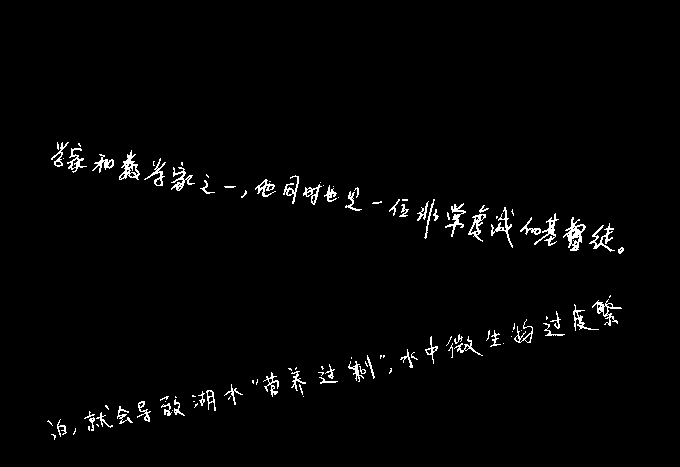 学家和数学家之一，他同时也是一位非常虔诚的基督徒。
泊，就会导致湖水“营养过剩”，水中微生物过度繁